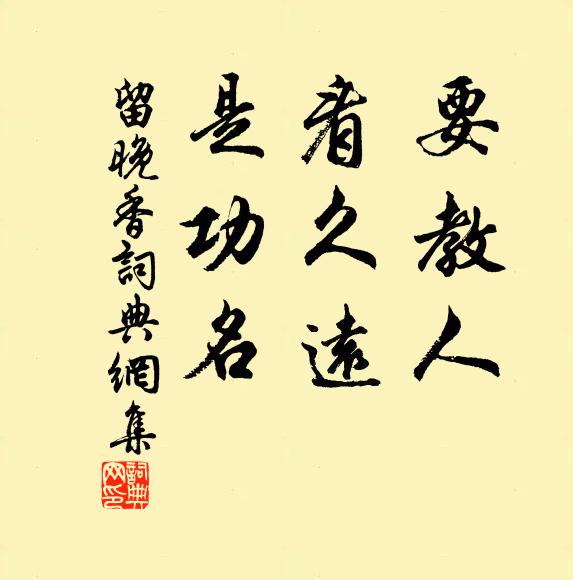 要教人
看久遠
是功名
留晚香詞典網集
詞典网印